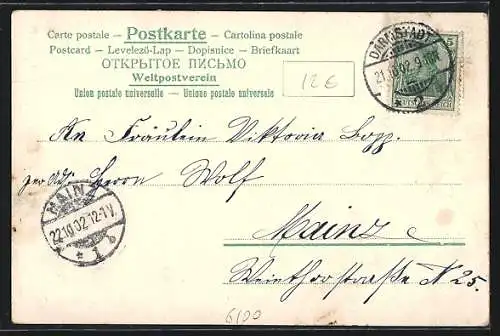 Carte postale - Postkarte - Cartolina postale
Postcard - Levelező-Lap - Dopisnice - Briefkaart
ОТКРЫТОЕ ПИСЬМО
Weltpostverein
Union postale universelle - Unione postale universale
12€
DARMSTADT
21.10.02.9-10
* 2
5
An Fräulein Viktoria Bopp.
per Adr. Herrn Wolf
Mainz
Weinthorstraße N 25.
MAINZ
22.10.02.12-1V.
* 1 b
6/00